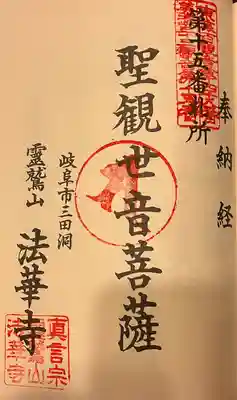 奉納経
第十五番札所
聖観世音菩薩
岐阜市三田洞
霊鷲山
法華寺
真言宗
法華寺